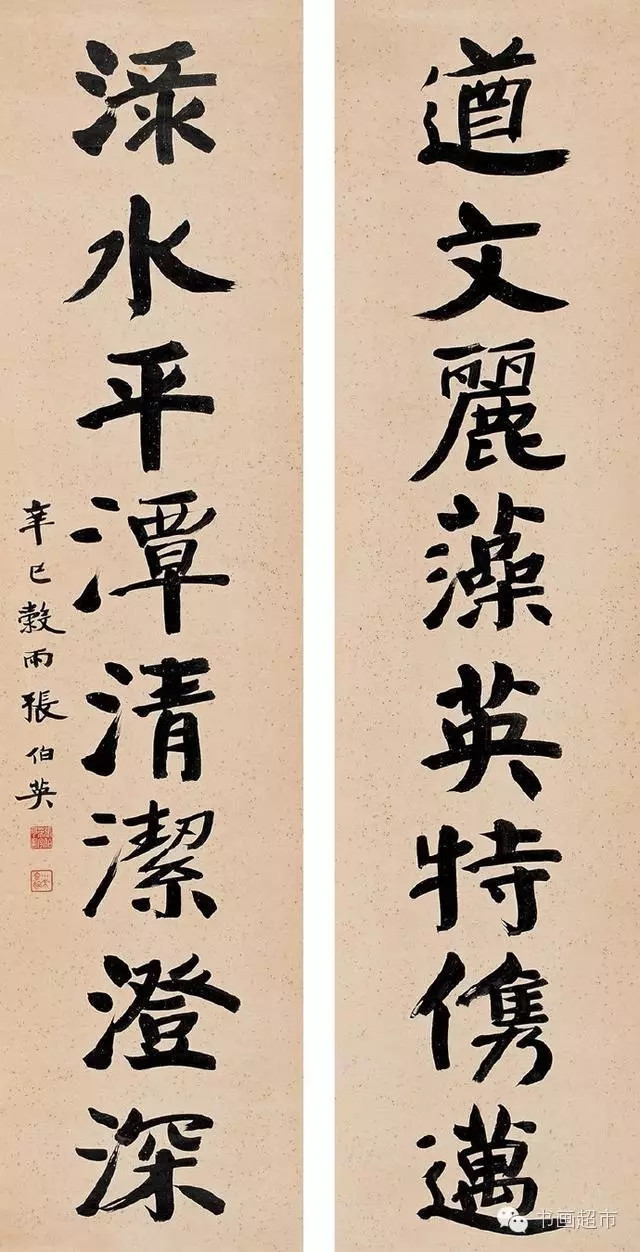 遒文麗藻英特儁邁
渌水平潭清潔澄深
辛巳穀雨張伯英
书画超市